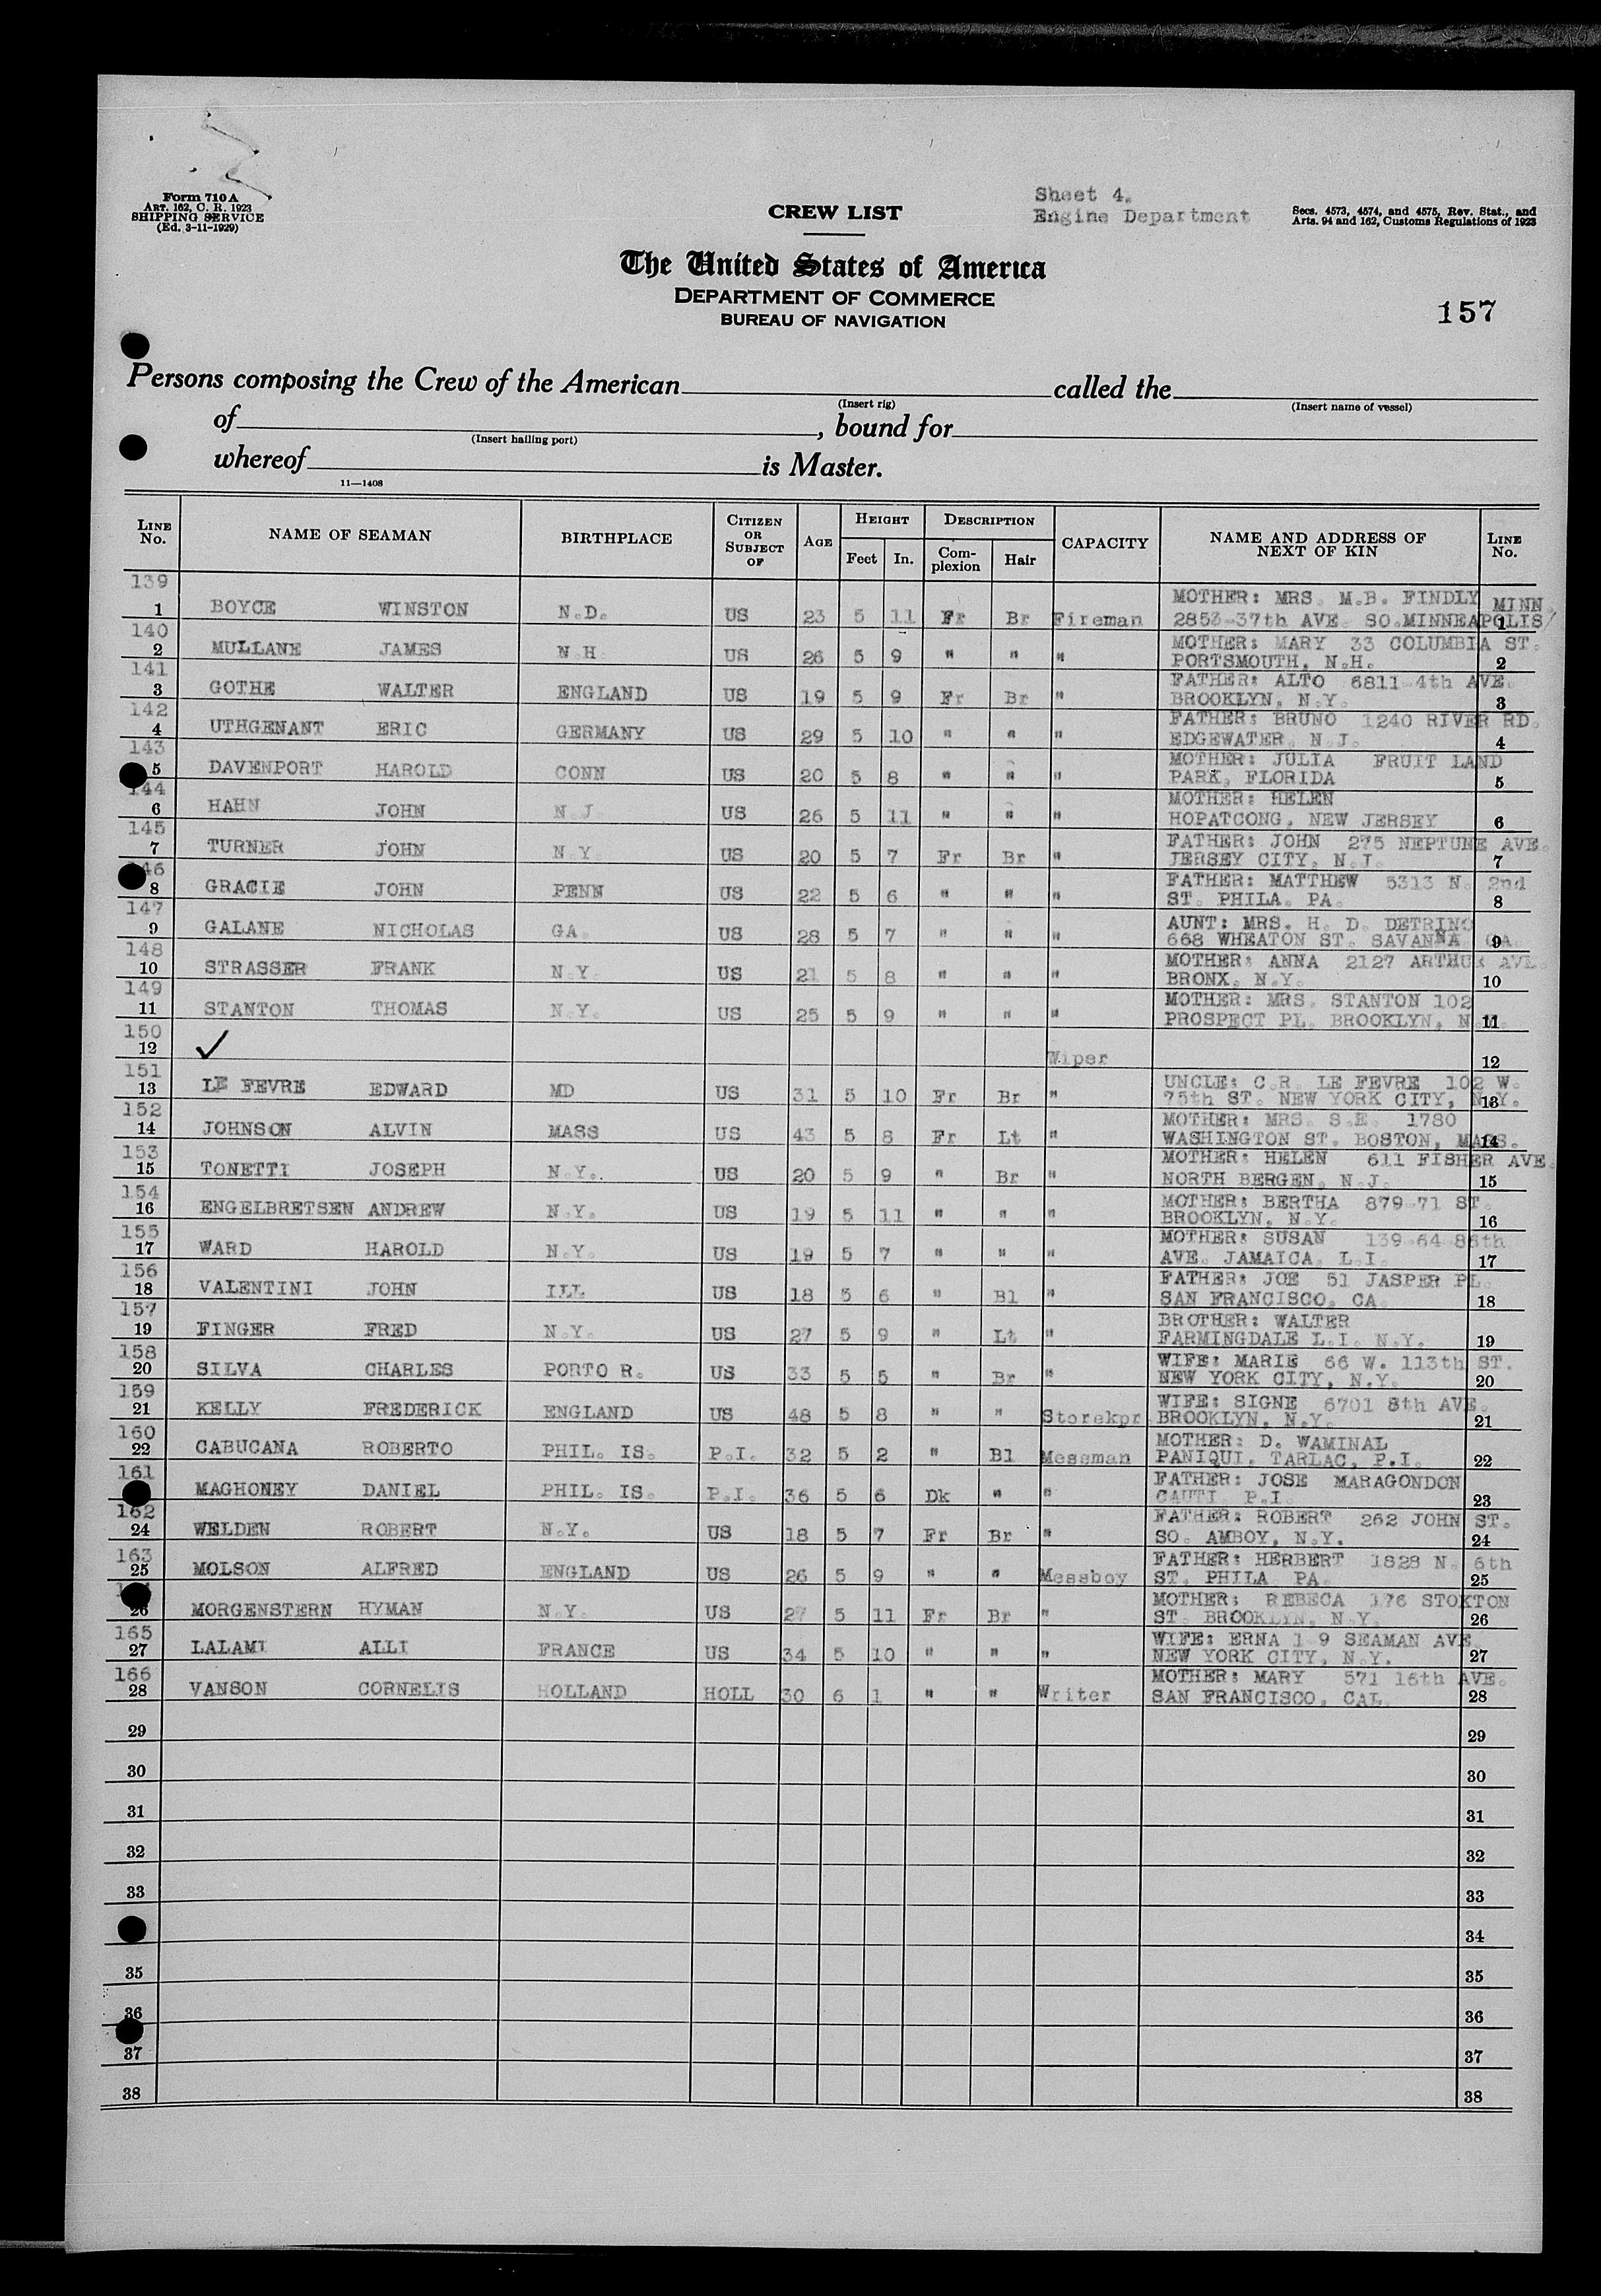 Form 710 A
ART. 162, C. R. 1923
SHIPPING SERVICE
(Ed. 3-11-1929)
Sheet 4.
CREW LIST
Engine Department
Secs. 4573, 4574, and 4575, Rev. Stat., and
Arts. 94 and 162, Customs Regulations of 1923
The United States of America
DEPARTMENT OF COMMERCE
BUREAU OF NAVIGATION
157
Persons composing the Crew of the American called the
(Insert rig) (Insert name of vessel)
of , bound for
(Insert hailing port)
whereof is Master.
11—1408
LINE No. NAME OF SEAMAN BIRTHPLACE CITIZEN OR SUBJECT OF AGE HEIGHT DESCRIPTION CAPACITY NAME AND ADDRESS OF NEXT OF KIN LINE No.
Feet In. Complexion Hair
139 MOTHER: MRS. M.B. FINDLY MINN.
1 BOYCE WINSTON N.D. US 23 5 11 Fr Br Fireman 2853-37th AVE. SO.MINNEAPOLIS/ 1
140 MOTHER: MARY 33 COLUMBIA ST.
2 MULLANE JAMES N.H. US 26 5 9 " " " PORTSMOUTH, N.H. 2
141 FATHER: ALTO 6811-4th AVE.
3 GOTHE WALTER ENGLAND US 19 5 9 Fr Br " BROOKLYN, N.Y. 3
142 FATHER: BRUNO 1240 RIVER RD.
4 UTHGENANT ERIC GERMANY US 29 5 10 " " " EDGEWATER, N.J. 4
143 MOTHER: JULIA FRUIT LAND
5 DAVENPORT HAROLD CONN US 20 5 8 " " " PARK, FLORIDA 5
144 MOTHER: HELEN
6 HAHN JOHN N.J. US 26 5 11 " " " HOPATCONG, NEW JERSEY 6
145 FATHER: JOHN 275 NEPTUNE AVE.
7 TURNER JOHN N.Y. US 20 5 7 Fr Br " JERSEY CITY, N.J. 7
46 FATHER: MATTHEW 5313 N. 2nd
8 GRACIE JOHN PENN US 22 5 6 " " " ST. PHILA. PA. 8
147 AUNT: MRS. H. D. DETRING
9 GALANE NICHOLAS GA. US 28 5 7 " " " 668 WHEATON ST. SAVANNA GA. 9
148 MOTHER: ANNA 2127 ARTHUR AVE.
10 STRASSER FRANK N.Y. US 21 5 8 " " " BRONX, N.Y. 10
149 MOTHER: MRS. STANTON 102
11 STANTON THOMAS N.Y. US 25 5 9 " " " PROSPECT PL. BROOKLYN, N.Y. 11
150
12 ✓ Wiper 12
151 UNCLE: C.R. LE FEVRE 102 W.
13 LE FEVRE EDWARD MD US 31 5 10 Fr Br " 75th ST. NEW YORK CITY, N.Y. 13
152 MOTHER: MRS. S.E. 1780
14 JOHNSON ALVIN MASS US 43 5 8 Fr Lt " WASHINGTON ST. BOSTON, MASS. 14
153 MOTHER: HELEN 611 FISHER AVE.
15 TONETTI JOSEPH N.Y. US 20 5 9 " Br " NORTH BERGEN, N.J. 15
154 MOTHER: BERTHA 879-71 ST.
16 ENGELBRETSEN ANDREW N.Y. US 19 5 11 " " " BROOKLYN, N.Y. 16
155 MOTHER: SUSAN 139-64 86th
17 WARD HAROLD N.Y. US 19 5 7 " " " AVE. JAMAICA, L.I. 17
156 FATHER: JOE 51 JASPER PL.
18 VALENTINI JOHN ILL US 18 5 6 " Bl " SAN FRANCISCO, CA. 18
157 BROTHER: WALTER
19 FINGER FRED N.Y. US 27 5 9 " Lt " FARMINGDALE L.I. N.Y. 19
158 WIFE: MARIE 66 W. 113th ST.
20 SILVA CHARLES PORTO R. US 33 5 5 " Br " NEW YORK CITY, N.Y. 20
159 WIFE: SIGNE 6701 8th AVE.
21 KELLY FREDERICK ENGLAND US 48 5 8 " " Storekpr BROOKLYN, N.Y. 21
160 MOTHER: D. WAMINAL
22 CABUCANA ROBERTO PHIL. IS. P.I. 32 5 2 " Bl Messman PANIQUI, TARLAC, P.I. 22
161 FATHER: JOSE MARAGONDON
MAGHONEY DANIEL PHIL. IS. P.I. 36 5 6 Dk " " CAUTI P.I. 23
162 FATHER: ROBERT 262 JOHN ST.
24 WELDEN ROBERT N.Y. US 18 5 7 Fr Br " SO. AMBOY, N.Y. 24
163 FATHER: HERBERT 1828 N. 6th
25 MOLSON ALFRED ENGLAND US 26 5 9 " " Messboy ST. PHILA PA. 25
MOTHER: REBECA 176 STOKTON
26 MORGENSTERN HYMAN N.Y. US 27 5 11 Fr Br " ST. BROOKLYN, N.Y. 26
165 WIFE: ERNA 1 9 SEAMAN AVE
27 LALAMI ALLI FRANCE US 34 5 10 " " " NEW YORK CITY, N.Y. 27
166 MOTHER: MARY 571 16th AVE.
28 VANSON CORNELIS HOLLAND HOLL 30 6 1 " " Writer SAN FRANCISCO, CAL. 28
29 29
30 30
31 31
32 32
33 33
34
35 35
36 36
37 37
38 38